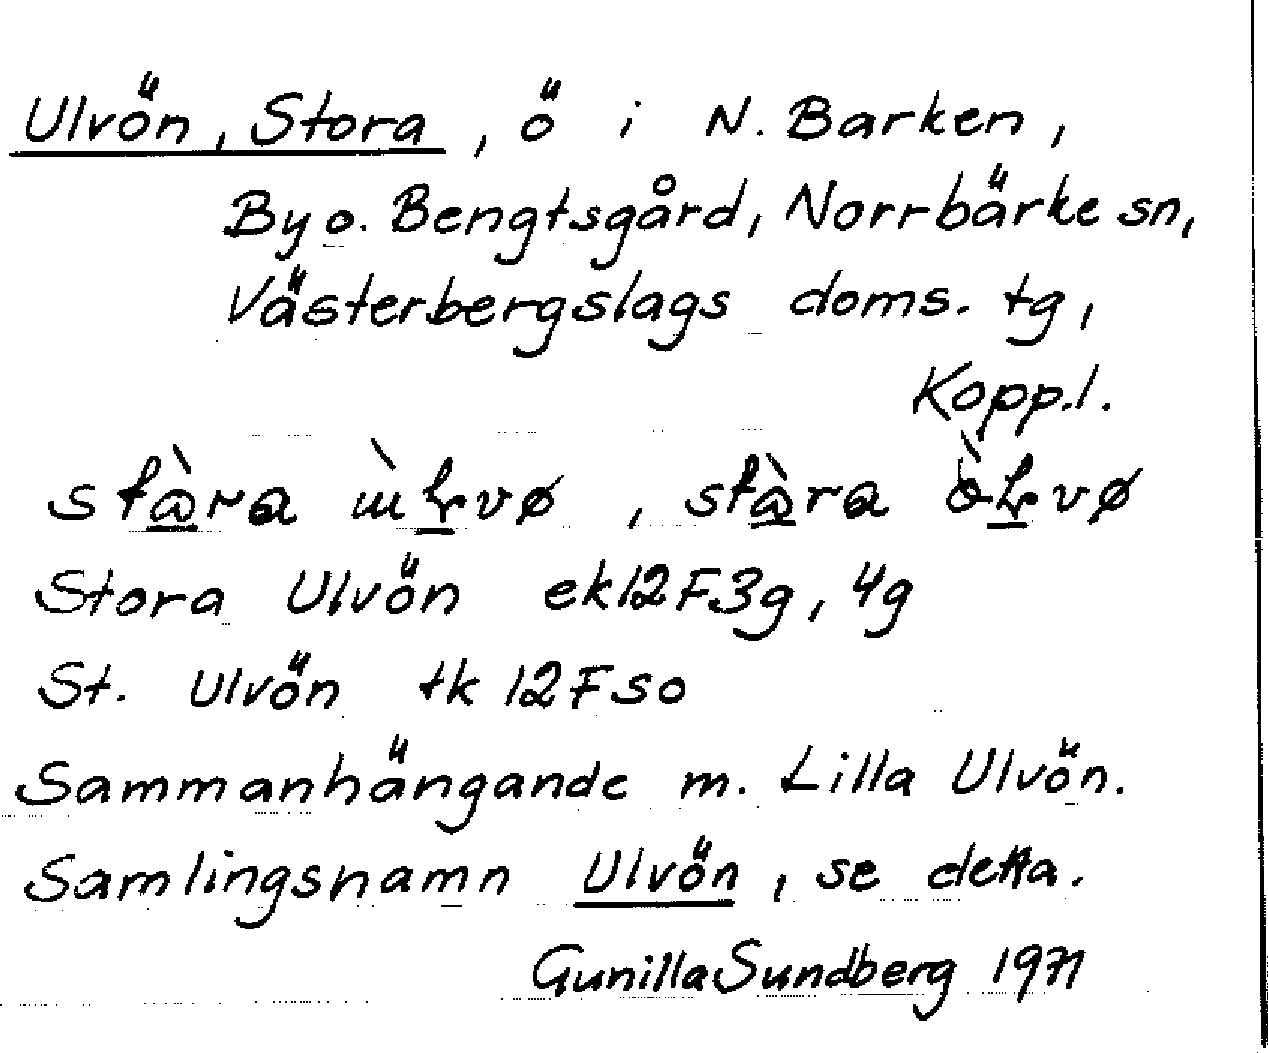 Ulvön, Stora, ö i N. Barken,
By o. Bengtsgård, Norrbärke sn,
Västerbergslags doms. tg,
Kopp.l.
Stora Ulvön ek 12F3g, 4g
St. Ulvön tk 12F so
Sammanhängande m. Lilla Ulvön.
Samlingsnamn Ulvön, se detta.
Gunilla Sundberg 1971